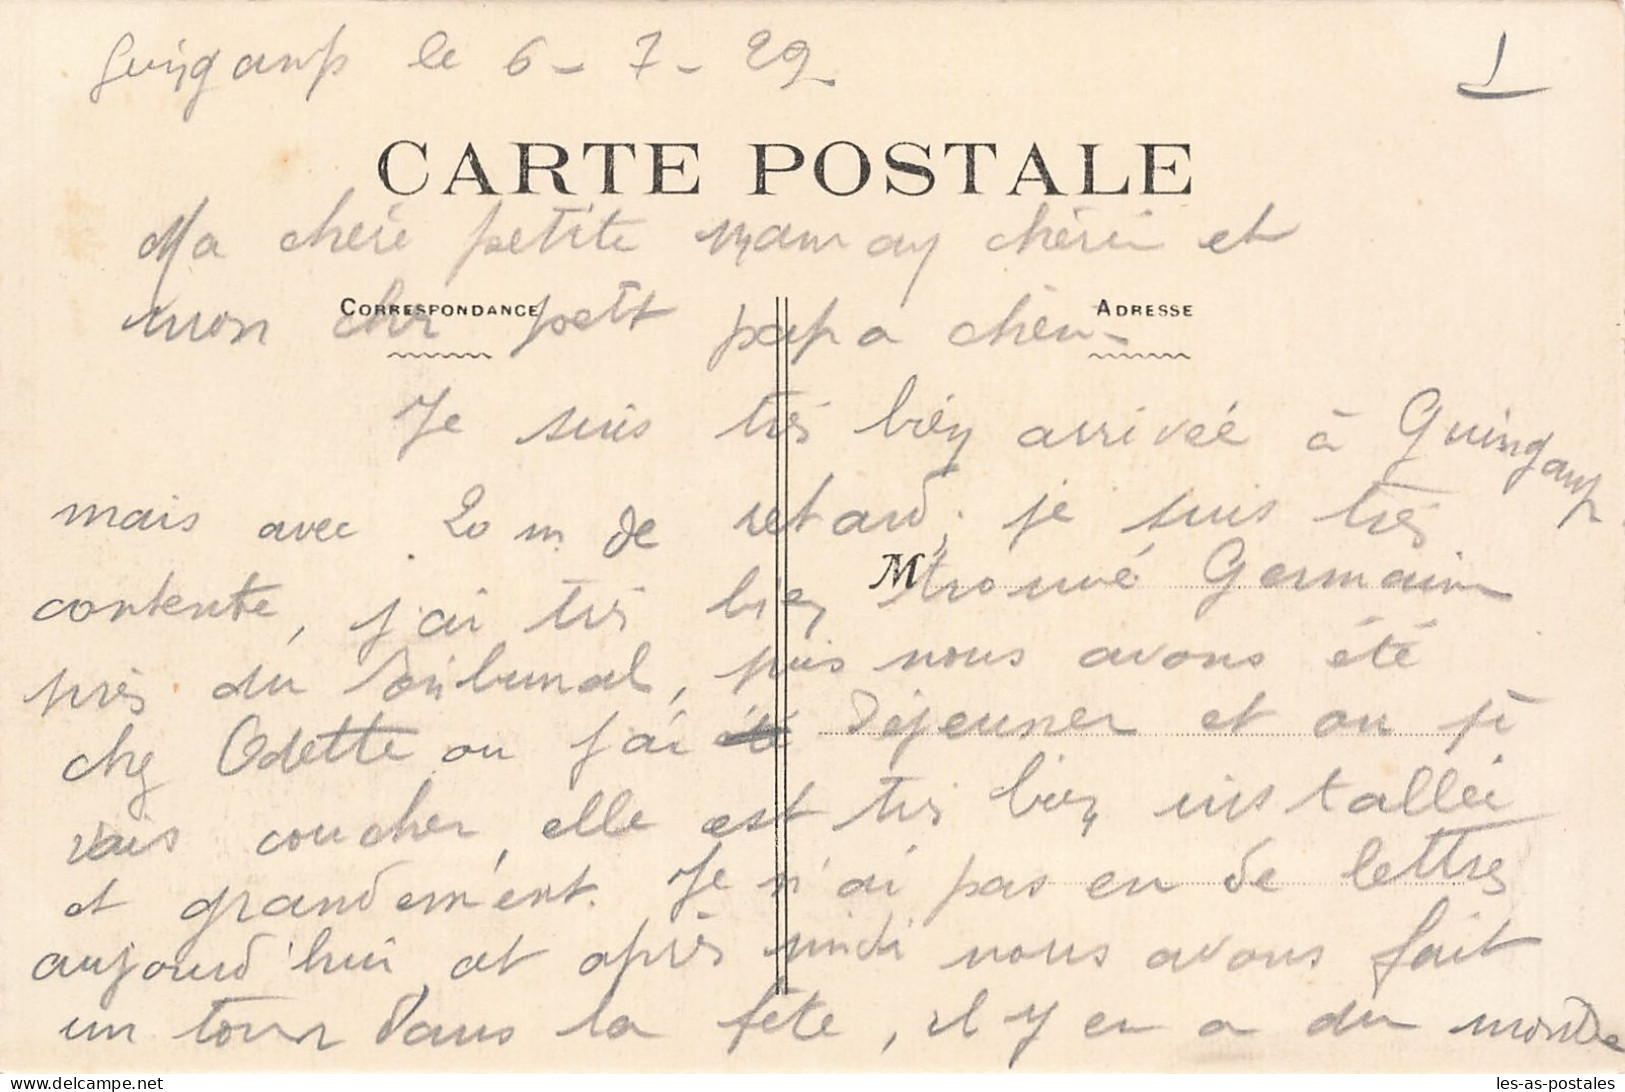 Guingamp le 6-7-29
1
CARTE POSTALE
Ma chère petite maman chérie et
CORRESPONDANCE
ADRESSE
mon cher petit papa chéri-
Je suis très bien arrivée à Guingamp
mais avec 20 m de retard, je suis très
contente, j'ai très bien trouvé Germain
M
près du Tribunal, puis nous avons été
chez Odette ou j'ai été Déjeuner et ou je
vais coucher, elle est très bien installée
et grandement. Je n'ai pas eu de lettres
aujourd'hui, et après midi nous avons fait
un tour dans la fête, il y en a du monde
les-as-postales